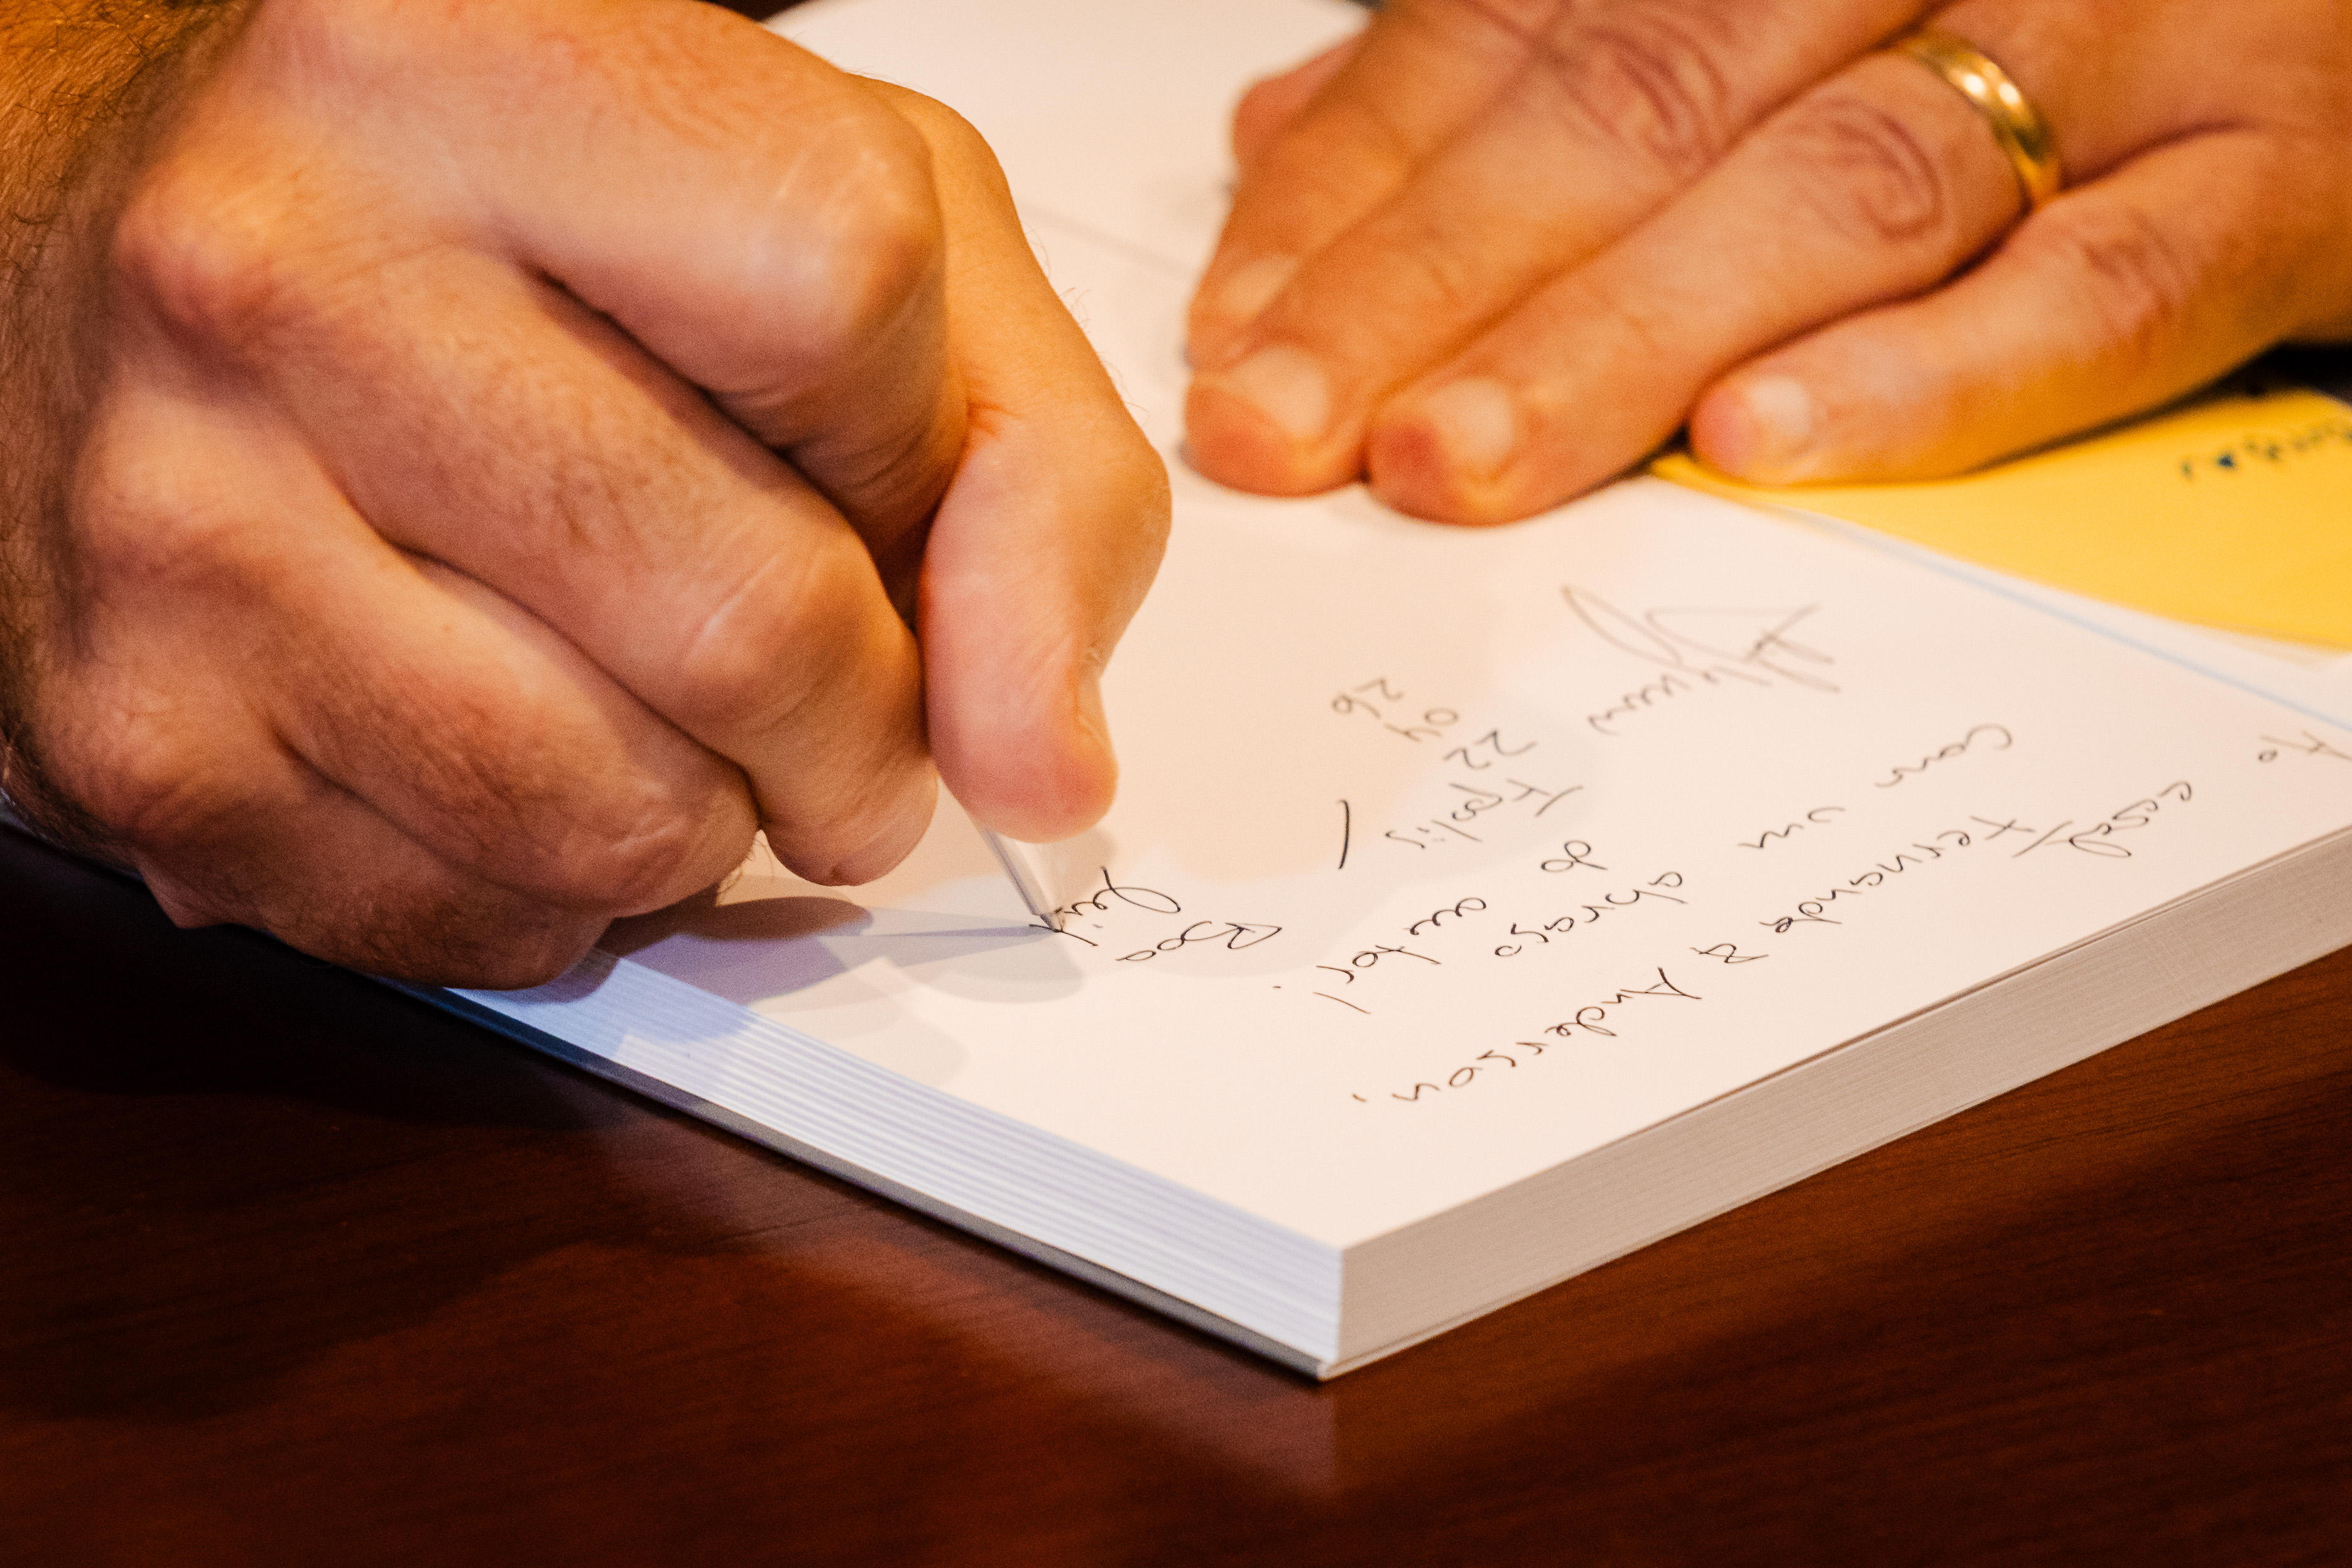 Ao casal Fernanda & Anderson,
com um abraço
do autor!
Fpolis
22
04
26
Boa
leit